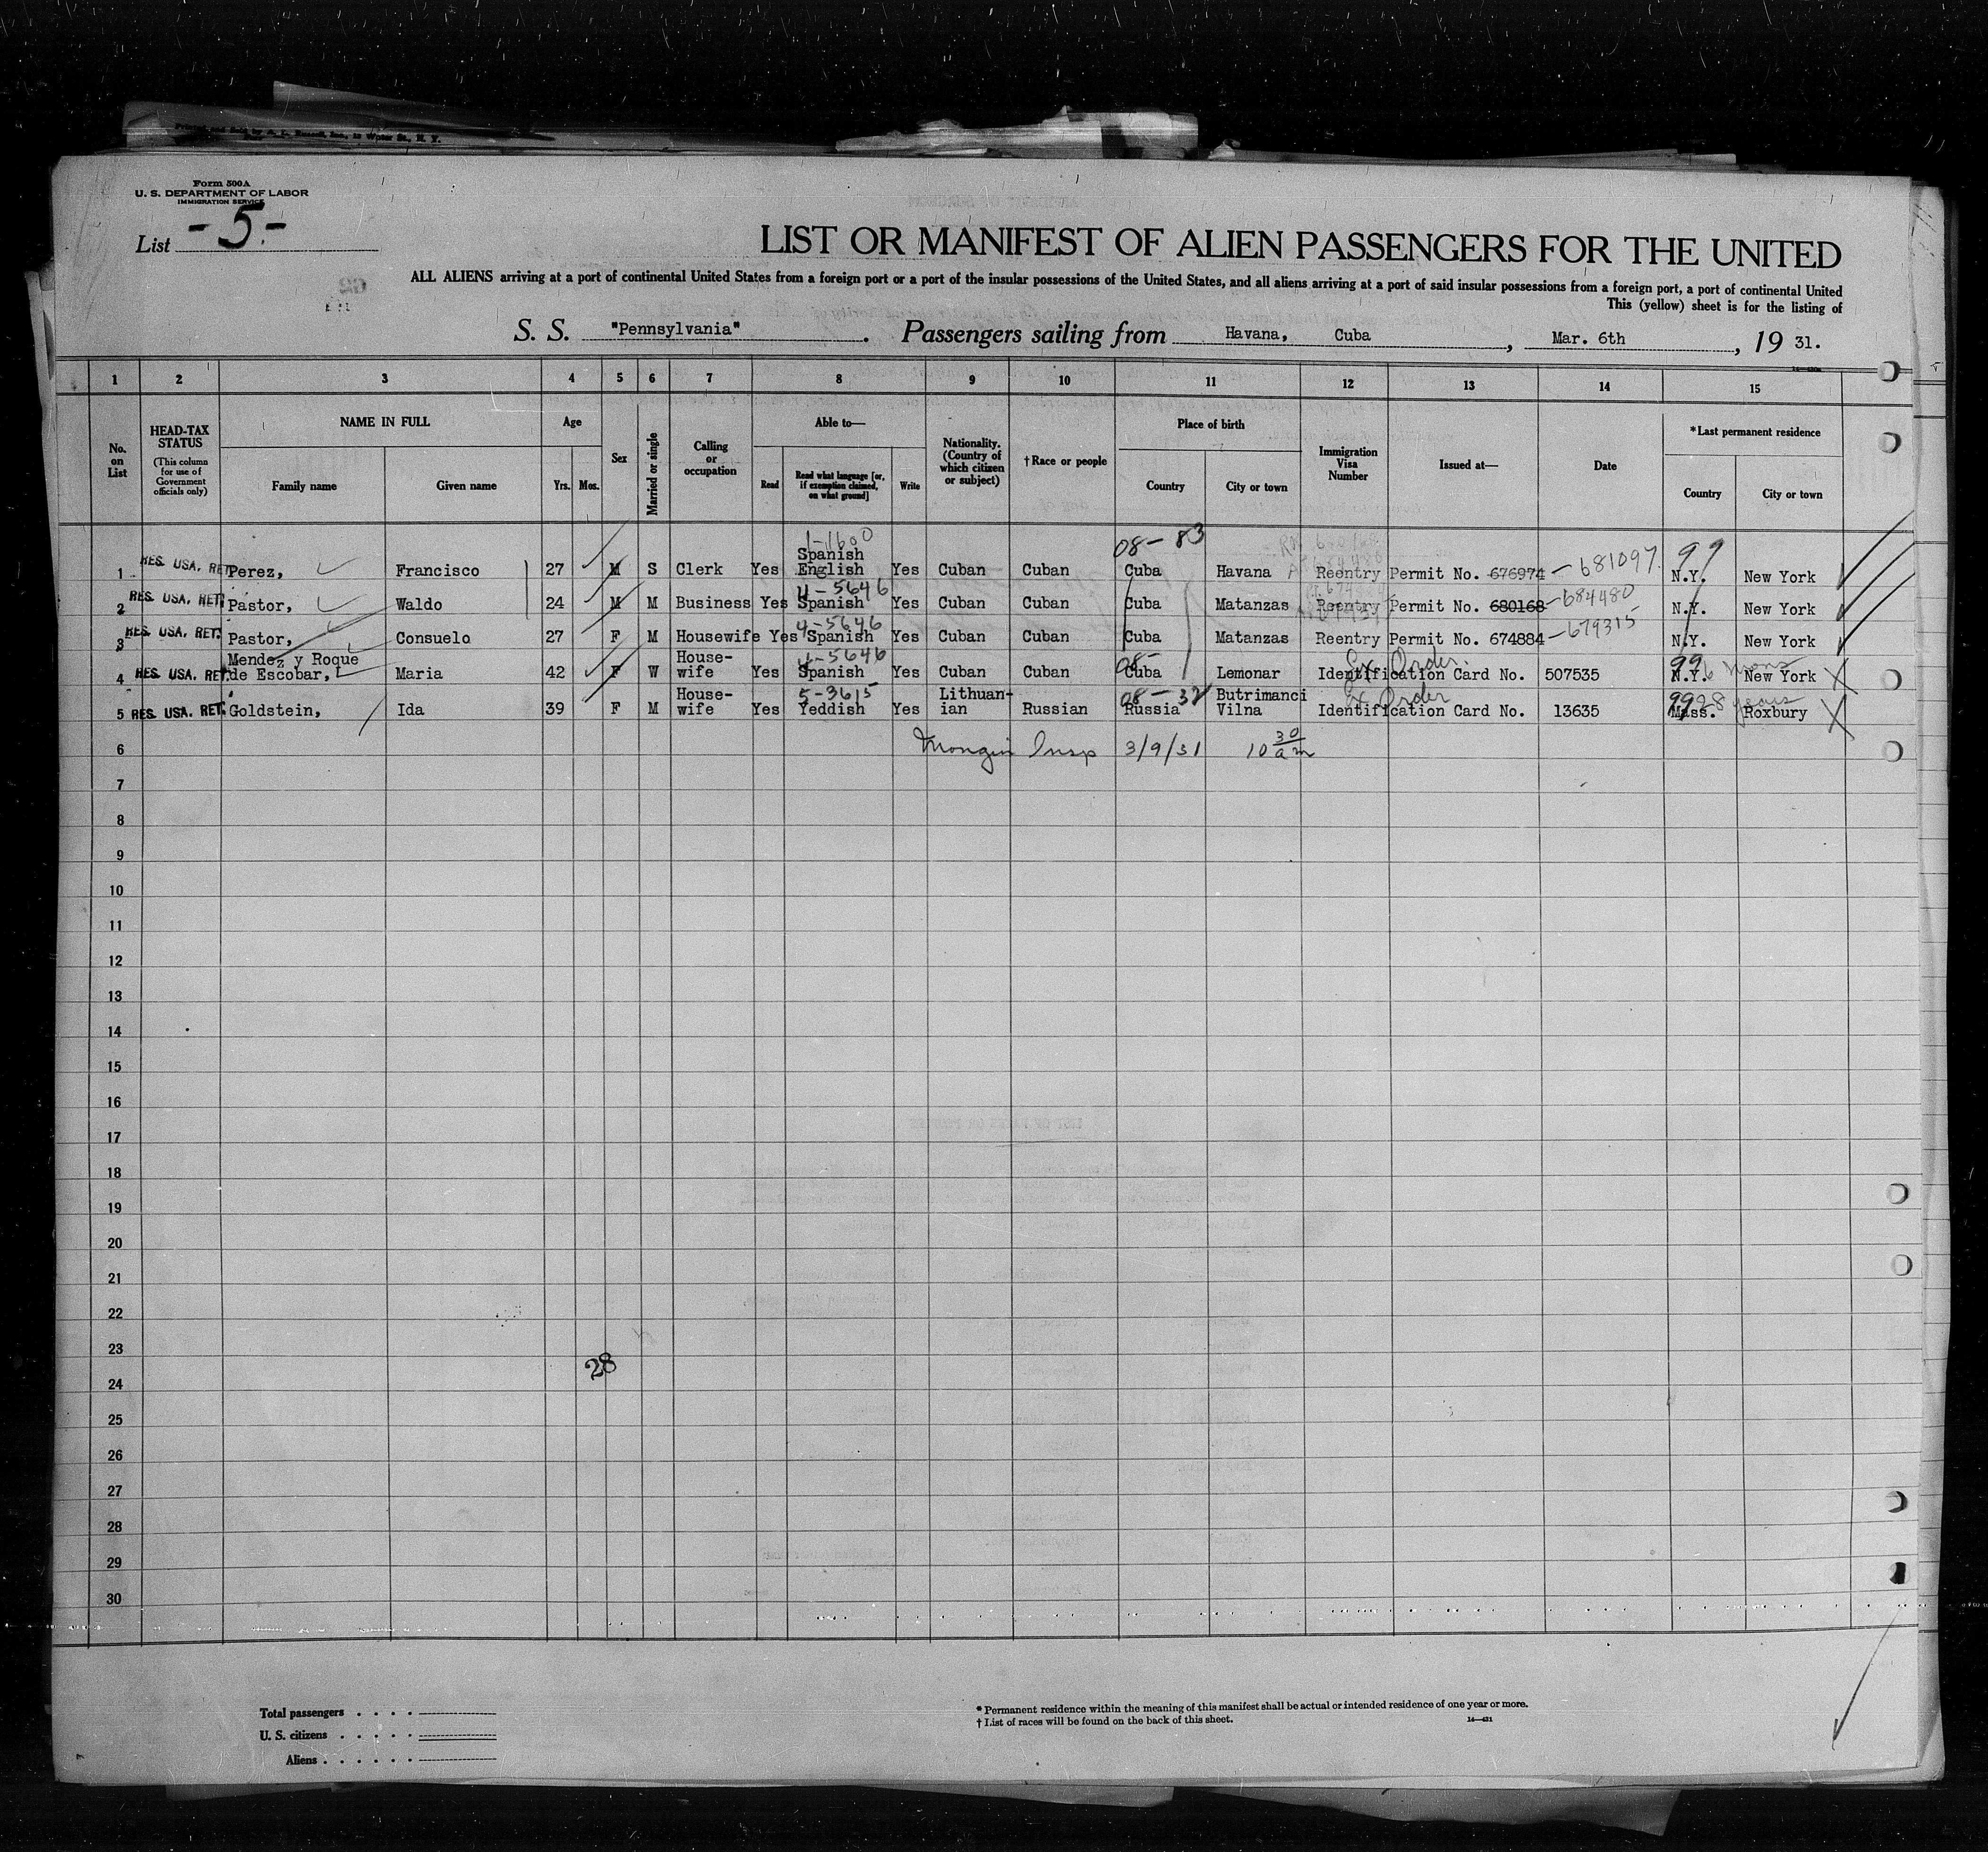 Form 500A
U. S. DEPARTMENT OF LABOR
IMMIGRATION SERVICE
List -5-
LIST OR MANIFEST OF ALIEN PASSENGERS FOR THE UNITED
ALL ALIENS arriving at a port of continental United States from a foreign port or a port of the insular possessions of the United States, and all aliens arriving at a port of said insular possessions from a foreign port, a port of continental United
This (yellow) sheet is for the listing of
S. S. "Pennsylvania". Passengers sailing from Havana, Cuba, Mar. 6th, 19 31.
1 2 3 4 5 6 7 8 9 10 11 12 13 14 15
No. on List
HEAD-TAX STATUS
(This column for use of Government officials only)
NAME IN FULL
Family name
Given name
Age
Yrs.
Mos.
Sex
Married or single
Calling or occupation
Able to—
Read
Read what language [or, if exemption claimed, on what ground]
Write
Nationality. (Country of which citizen or subject)
†Race or people
Place of birth
Country
City or town
Immigration Visa Number
Issued at—
Date
*Last permanent residence
Country
City or town
1-1600
08-83
99
1 RES. USA. RET. Perez, Francisco 27 M S Clerk Yes Spanish English Yes Cuban Cuban Cuba Havana Reentry Permit No. 676974 -681097 N.Y. New York
4-5646
2 RES. USA. RET. Pastor, Waldo 24 M M Business Yes Spanish Yes Cuban Cuban Cuba Matanzas Reentry Permit No. 680168 -684480 N.Y. New York
4-5646
3 RES. USA. RET. Pastor, Consuelo 27 F M Housewife Yes Spanish Yes Cuban Cuban Cuba Matanzas Reentry Permit No. 674884 -679315 N.Y. New York
4-5646
08-
Ex Order
99
4 RES. USA. RET. Mendez y Roque de Escobar, Maria 42 F W House-wife Yes Spanish Yes Cuban Cuban Cuba Lemonar Identification Card No. 507535 N.Y. New York
5-3615
08-32
Ex Order
99 28 years
5 RES. USA. RET. Goldstein, Ida 39 F M House-wife Yes Yeddish Yes Lithuan-ian Russian Russia Butrimanci Vilna Identification Card No. 13635 Mass. Roxbury
6 Insp 3/9/31 10 30 am
7
8
9
10
11
12
13
14
15
16
17
18
19
20
21
22
23
28
24
25
26
27
28
29
30
Total passengers . . . .
U. S. citizens . . . . .
Aliens . . . . . .
* Permanent residence within the meaning of this manifest shall be actual or intended residence of one year or more.
† List of races will be found on the back of this sheet.
14—431